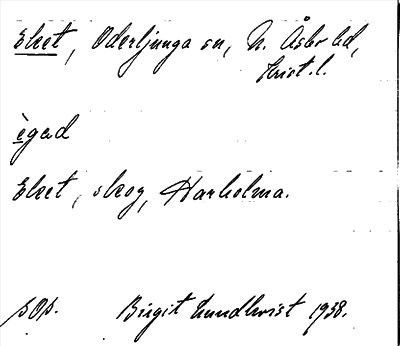 Ekeet, Oderljunga sn, N. Åsbo hd,
Krist. l.
ègəd
Ekeet, skog, Harholma.
sOp. Birgit Lundkvist 1938.